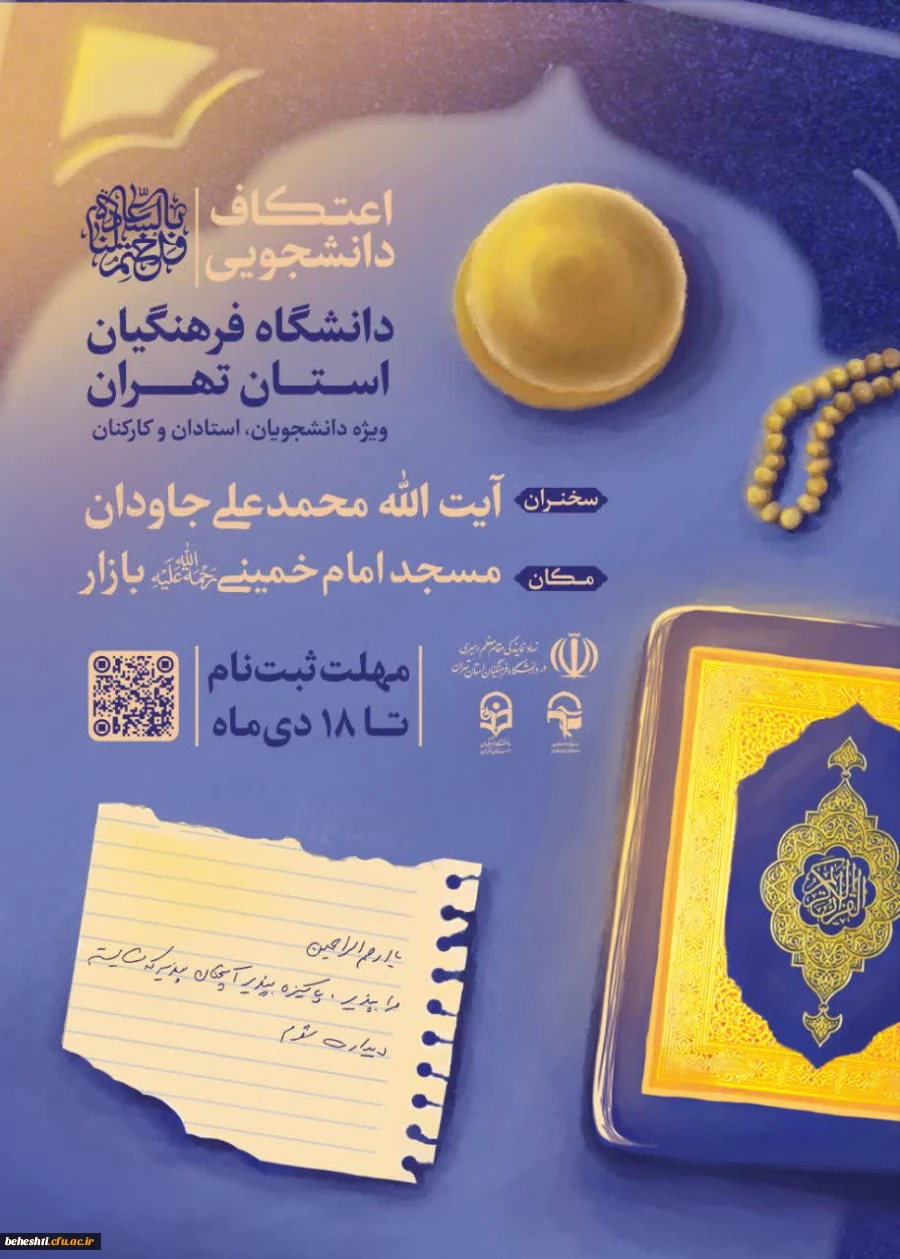 اعتکاف
دانشجویی
دانشگاه فرهنگیان
استان تهران
ویژه دانشجویان، استادان و کارکنان
سخنران
آیت الله محمدعلی جاودان
مکان
مسجد امام خمینی رحمة الله علیه بازار
نهاد نمایندگی مقام معظم رهبری
در دانشگاه فرهنگیان استان تهران
مهلت ثبت‌نام
تا ۱۸ دی‌ماه
یا ارحم الراحمین
مرا بپذیر، پاکیزه بپذیر آنچنان بپذیر که شایسته
دیدارت شوم
beheshti.cfu.ac.ir